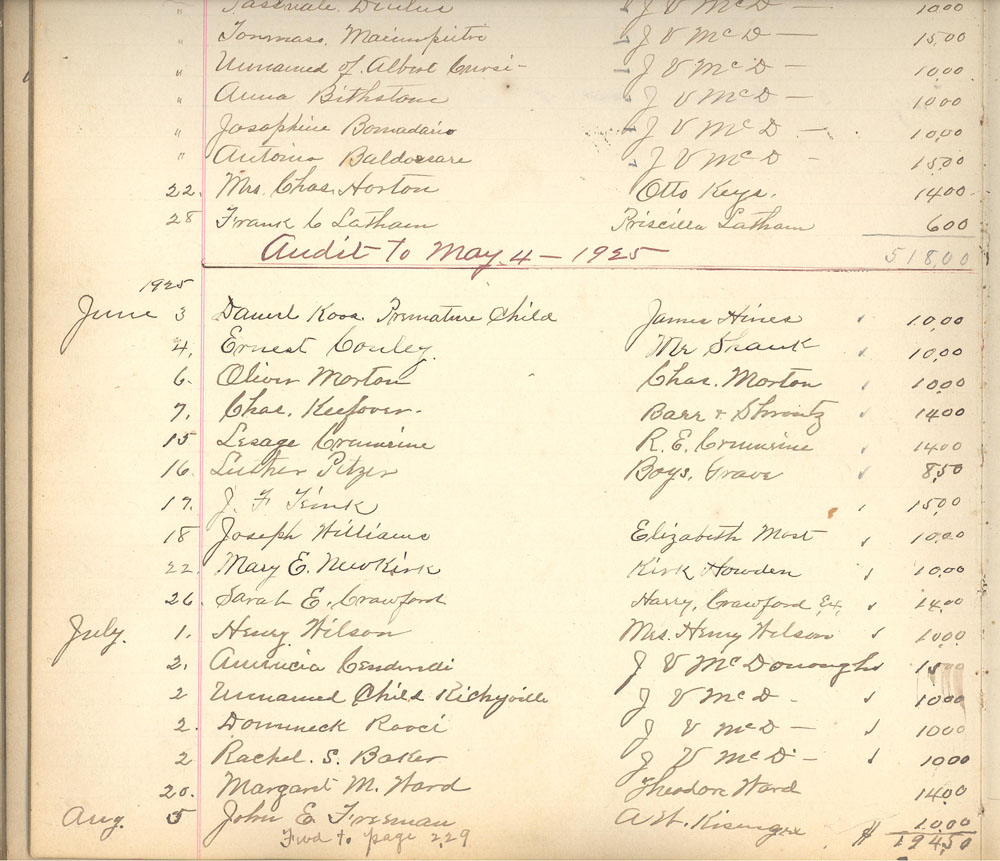 " J V McD — 10 00
" Tommaso, J V McD — 15,00
" Unnamed of Albert J V McD — 10,00
" Anna Bithstone J V McD — 10,00
" Josephine Bomadario J V McD — 10,00
" Antonio Baldossare J V McD — 15,00
22. Mrs. Chas. Horton Otto Keys. 14 00
28 Frank C Latham Priscilla Latham 6 00
Audit to May 4 — 1925 518,00
1925
June 3 Daniel Koos. Premature Child James Hines 10,00
4, Ernest Conley Mr Shank 10,00
6. Oliver Morton Chas. Morton 10 00
7, Chas. Keefover. Barr & 14 00
15 Lesage Crumrine R. E. Crumrine 14 00
16. Luther Pitzer Boys, Grave 8,50
17. J. F 15,00
18 Joseph Williams Elizabeth Most 10,00
22. Mary E. NewKirk Kirk Howden 10,00
26. Sarah E. Crawford Harry, Crawford, Ex, 14,00
July. 1. Henry Wilson Mrs. Henry Wilson 10,00
2. J V McDonough 15
2 Unnamed Child Richyville J V McD — 10 00
2. Domineck J V McD — 10 00
2 Rachel. S. Baker J V McD — 10 00
20. Margaret M. Ward Theodore Ward 14 00
Aug. 5 John E Freeman 10.00
Fwd to page 229 $ 194,50